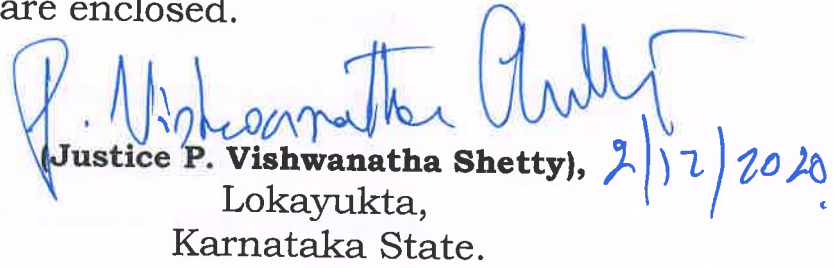 are enclosed.
P. Vishwanatha Shetty
(Justice P. Vishwanatha Shetty), 2/12/2020
Lokayukta,
Karnataka State.